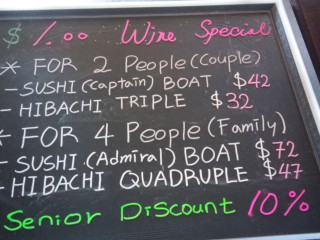 $ 1.00 Wine Special
* FOR 2 People (Couple)
- SUSHI (Captain) BOAT $42
- HIBACHI TRIPLE $32
* FOR 4 People (Family)
- SUSHI (Admiral) BOAT $72
- HIBACHI QUADRUPLE $47
Senior Discount 10%